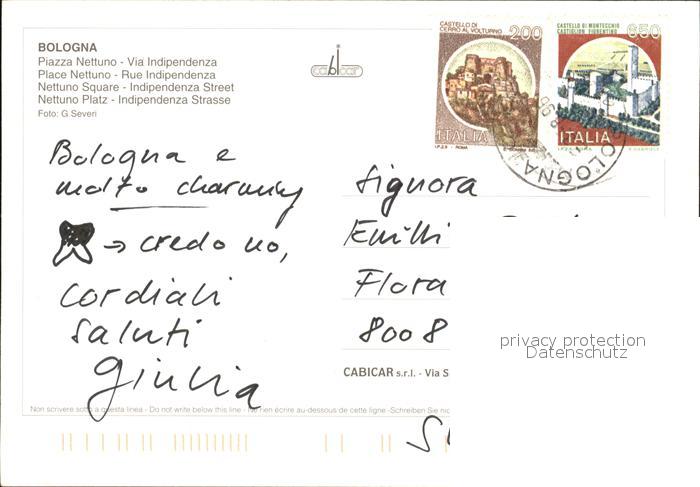 BOLOGNA
Piazza Nettuno - Via Indipendenza
Place Nettuno - Rue Indipendenza
Nettuno Square - Indipendenza Street
Nettuno Platz - Indipendenza Strasse
Foto: G. Severi
cabicar
CASTELLO DI
CERRO AL VOLTURNO 200
ITALIA
I.P.Z.S. - ROMA
CASTELLO DI MONTECCHIO
CASTIGLION FIORENTINO 650
ITALIA
BOLOGNA
Bologna e
molto charming
→ credo no,
cordiali
saluti
Giulia
Signora
Emilli
Flora
8008
privacy protection
Datenschutz
CABICAR s.r.l. - Via S
Non scrivere sotto a questa linea - Do not write below this line - Ne rien écrire au-dessous de cette ligne - Schreiben Sie nic